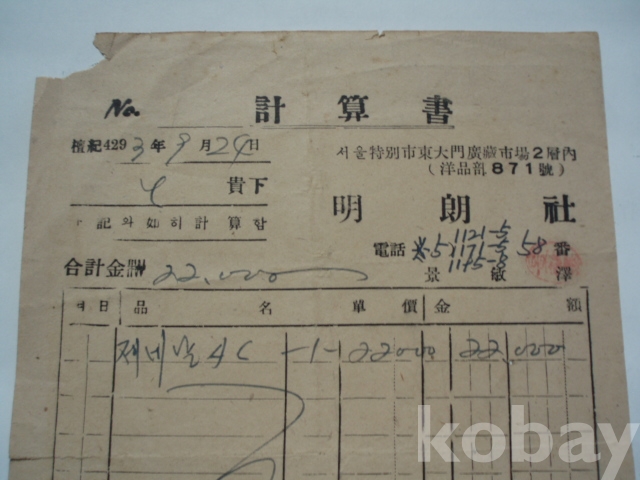 No. 計算書
檀紀4293年9月24日
서울特別市東大門廣藏市場2層內
(洋品部871號)
貴下
記와如히計算함
明朗社
電話 1121-5 58番
合計金 22,000
月日 品名 單價 金額
제네날 AC -1- 22000 22,000
kobay